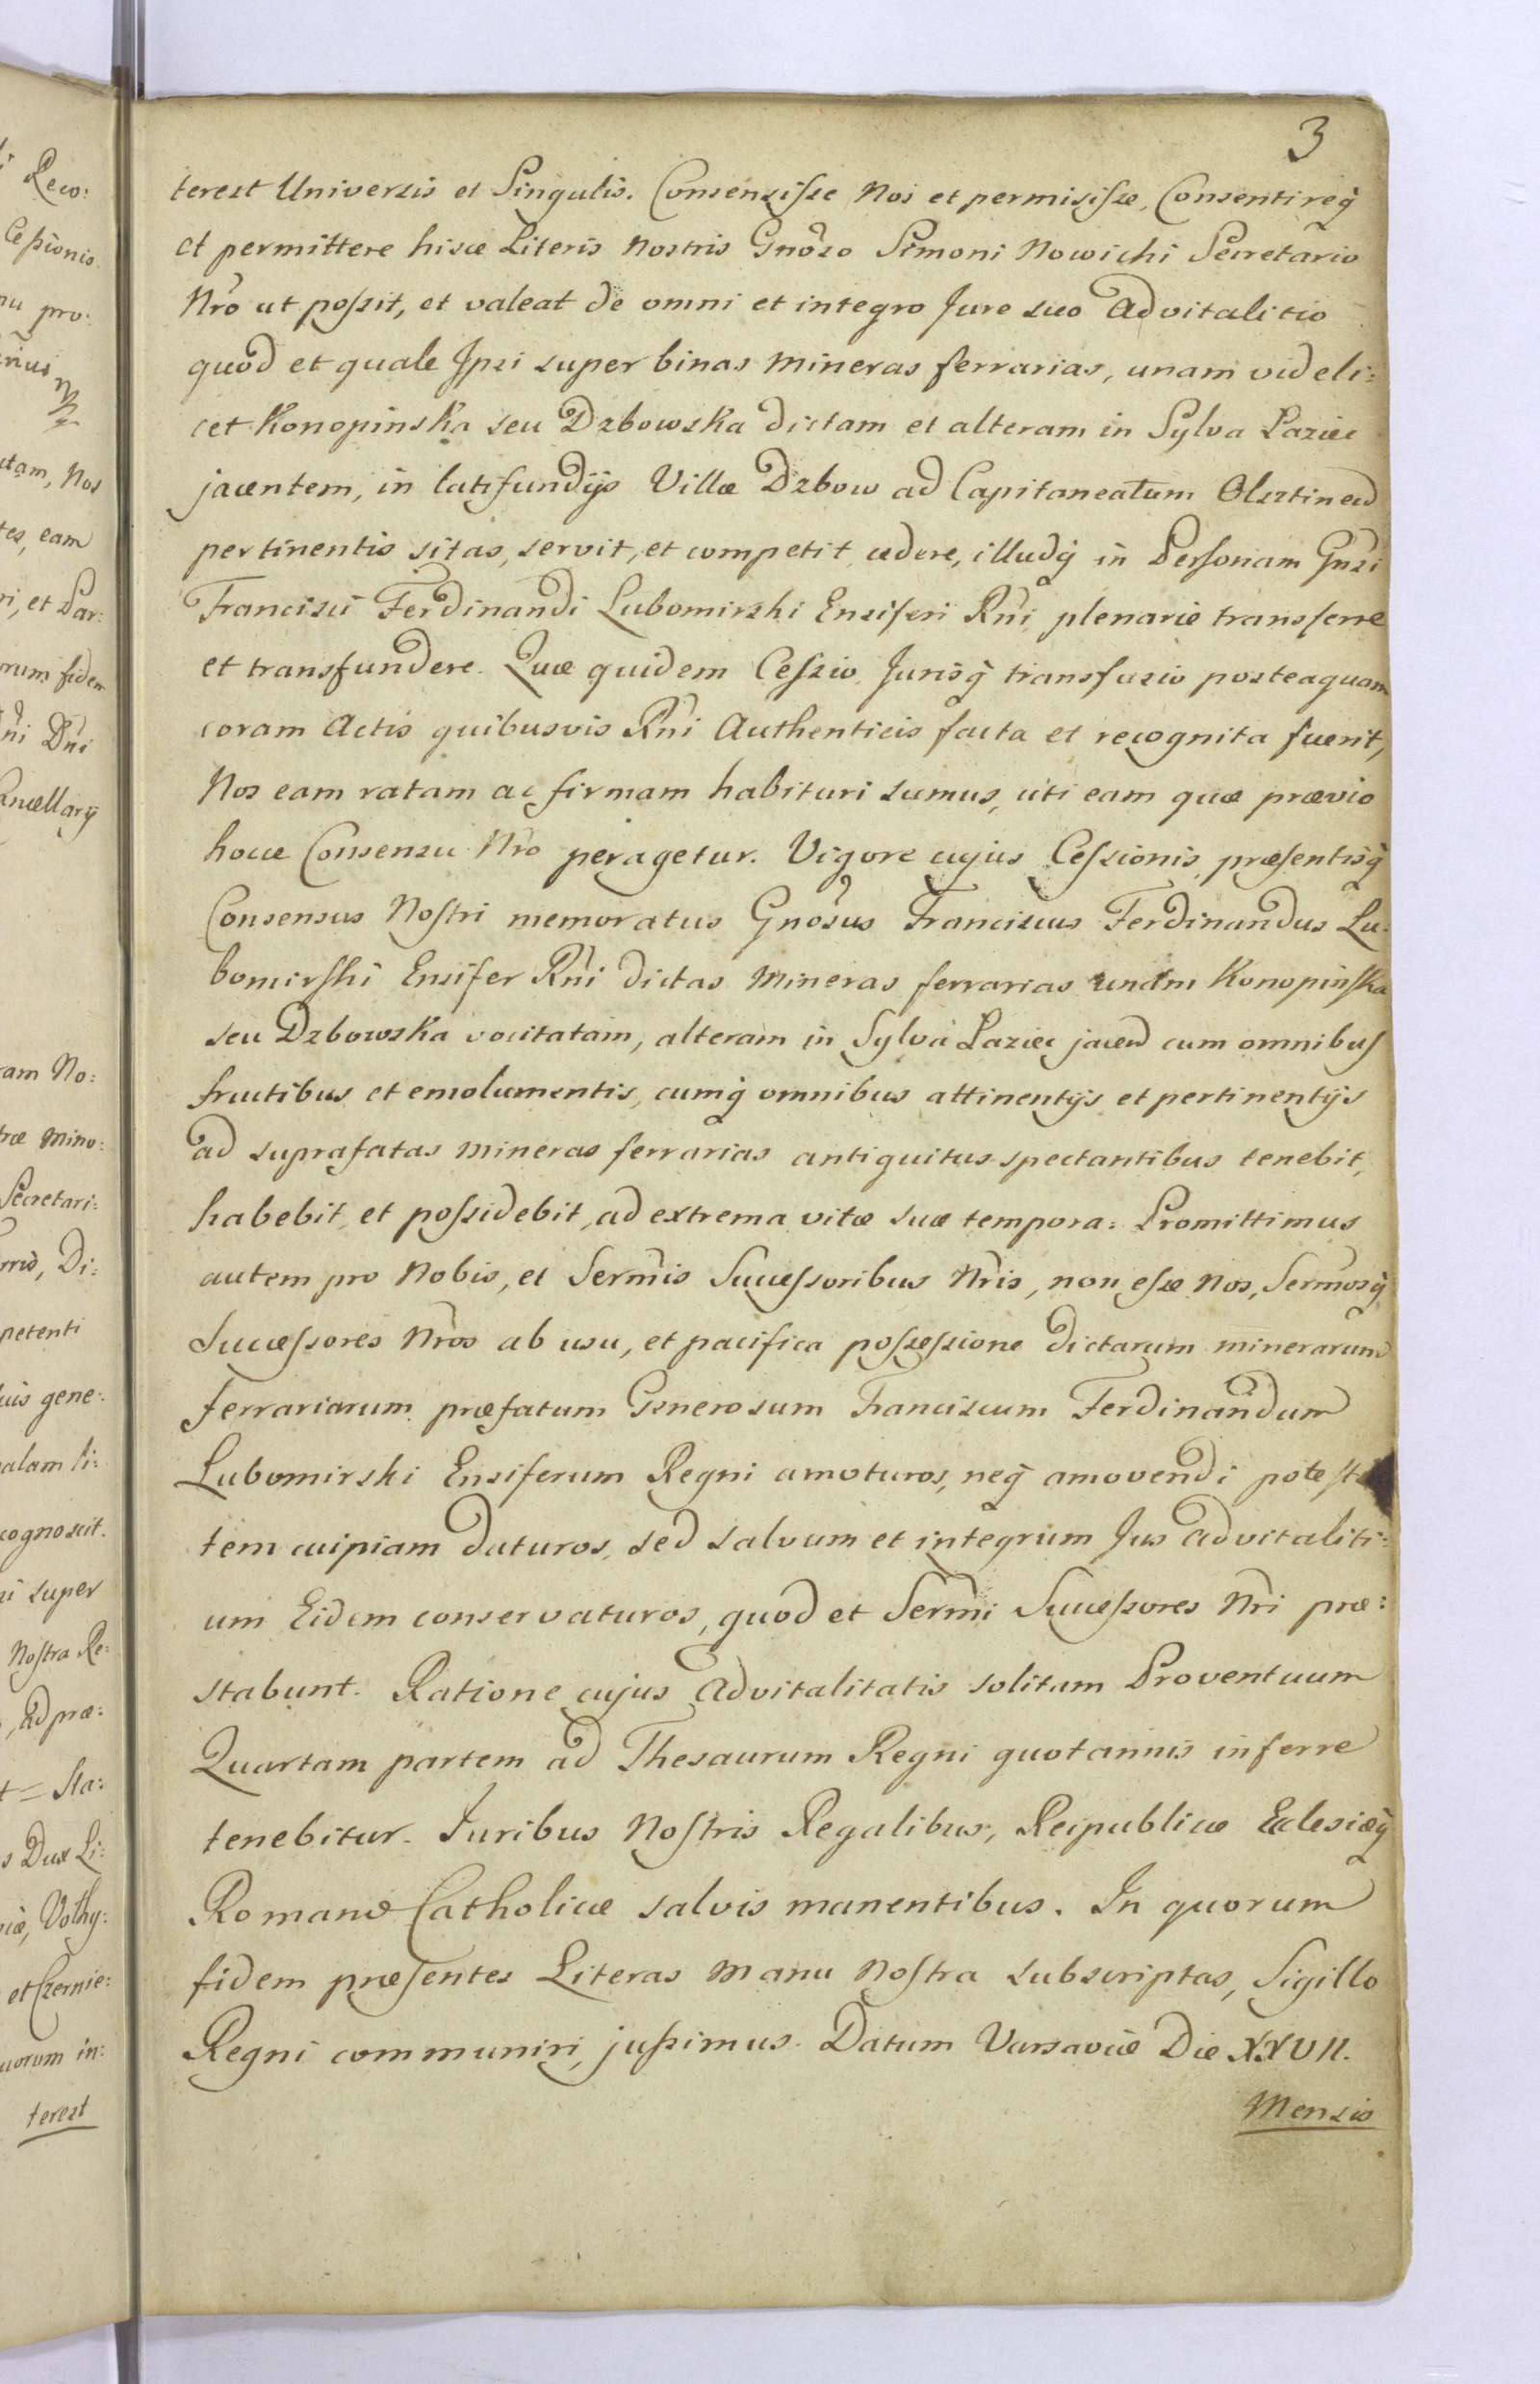 3
terest Universis et Singulis. Consensisse Nos et permisisse, Consentireq̃
et permittere hisce Literis Nostris Gnõso Simoni Nowicki Secretario
Nrõ ut possit, et valeat de omni et integro Jure suo Advitalitio
quod et quale Ipsi super binas Mineras ferrarias, unam videli:
cet Konopinska seu Dzbowska dictam et alteram in Sylva Laziec
jacentem, in latifundijs Villæ Dzbow ad Capitaneatum Olsztinen̄
pertinentis sitas, servit, et competit cedere, illudq̃ in Personam Gnsi
Francisci Ferdinandi Lubomirski Ensiferi Rñi plenarie transferre
et transfundere. Quæ quidem Cessio Jurisq̃ transfusio posteaquam
coram Actis quibusvis Rñi Authenticis facta et recognita fuerit,
Nos eam ratam ac firmam habituri sumus, uti eam quæ prævio
hocce Consensu Nrõ peragetur. Vigore cujus Cessionis, præsentisq̃
Consensus Nostri memoratus Gnõsus Franciscus Ferdinandus Lu:
bomirski Ensifer Rñi dictas Mineras ferrarias unam Konopinska
seu Dzbowska vocitatam, alteram in Sylva Laziec jacen̄ cum omnibus
fructibus et emolumentis, cumq̃ omnibus attinentijs et pertinentijs
ad suprafatas Mineras ferrarias antiquitus spectantibus tenebit,
habebit, et possidebit, ad extrema vitæ suæ tempora: Promittimus
autem pro Nobis, et Sermis Successoribus Nrĩs, non esse Nos, Sermosq̃
Successores Nrõs ab usu, et pacifica possessione dictarum minerarum
ferrariarum præfatum Generosum Franciscum Ferdinandum
Lubomirski Ensiferum Regni amoturos, neq̃ amovendi potesta
tem cuipiam daturos, sed salvum et integrum Jus advitaliti:
um Eidem conservaturos, quod et Sermi Successores Nrĩ præ:
stabunt. Ratione cujus Advitalitatis solitam Proventuum
Quartam partem ad Thesaurum Regni quotannis inferre
tenebitur. Juribus Nostris Regalibus, Reipublicæ Eclesiæq̃
Romanæ Catholicæ salvis manentibus. In quorum
fidem præsentes Literas Manu Nostra subscriptas, Sigillo
Regni communiri jussimus. Datum Varsaviæ Die XXVII.
Mensis
Reco:
Cessionis
pro:
Nos
eam
et Par:
fidem
Dñi
am No:
Mino:
Secretari:
Di:
petenti
gene:
cognoscit.
super
Nostra Re:
ad præ:
Sta:
Dux Li:
Volhy:
et Czernie:
in:
terest